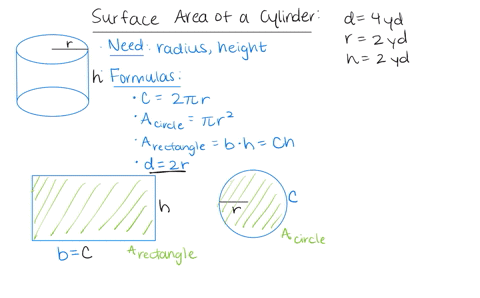 Surface Area of a Cylinder:
d = 4yd
r = 2yd
h = 2 yd
r
h
· Need: radius, height
· Formulas:
· C = 2πr
· A circle = πr²
· A rectangle = b·h = Ch
· d = 2r
h
b = C
A rectangle
r
C
A circle